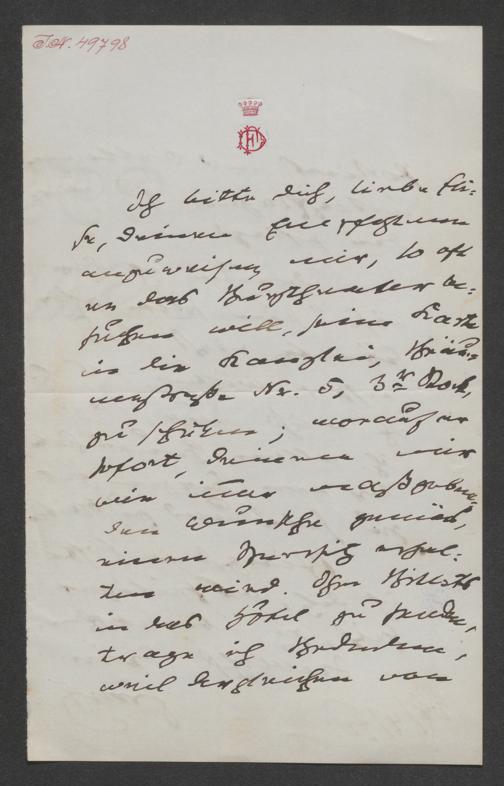 I.N. 49798
Ich bitte dich, liebe Eli-
se, deinen Empfohlenen
anzuweisen mir, so oft
er das Burgtheater be-
suchen will, seine Karte
in die Kanzlei, Bräu-
nerstraße Nr. 5, 3ter Stock,
zu schicken; worauf er
sofort, deinem mir
wie immer maßgeben-
den Wunsche gemäß,
einen Sperrsitz erhal-
ten wird. Ihm Billets
in das Hôtel zu senden,
trage ich Bedenken,
weil dergleichen von